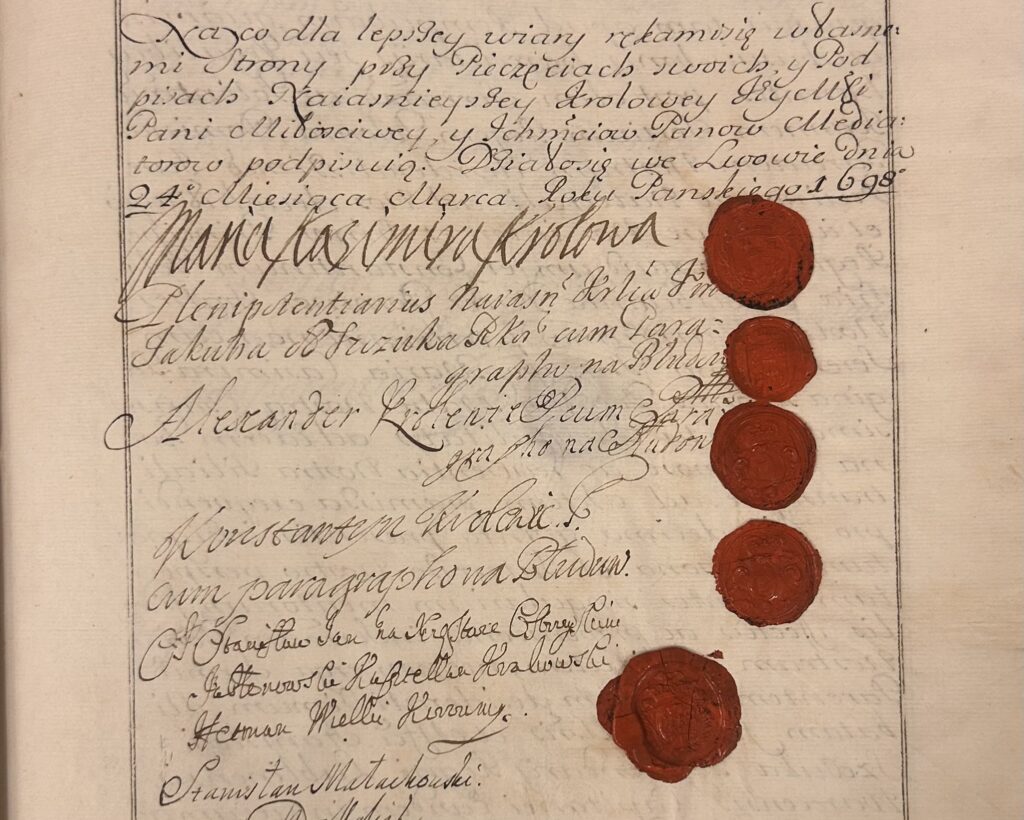 Na co dla lepszey wiary rękamisię własne:
mi Strony przy Pieczęciach swoich, y Pod
pisach Naiasnieyszey Krolowey JEyMSci
Pani Miłosciwey, y Jchmsciow Panow Media:
torow podpisuią. Działosię we Lwowie dnia
24º Miesiąca Marca. Roku Panskiego 1698º
Maria Kazimira Krolowa
Plenipotentiarius Naiasń
Jakuba Szczuka cum Para=
grapho na
Alexander cum Para
grapho na
Konstantyn
cum paragrapho na Błudow.
Stanisław Jan na
Jabłonowski Kasztellan Krakowski
Hetman Wielki Koronny.
Stanisław Małachowski.